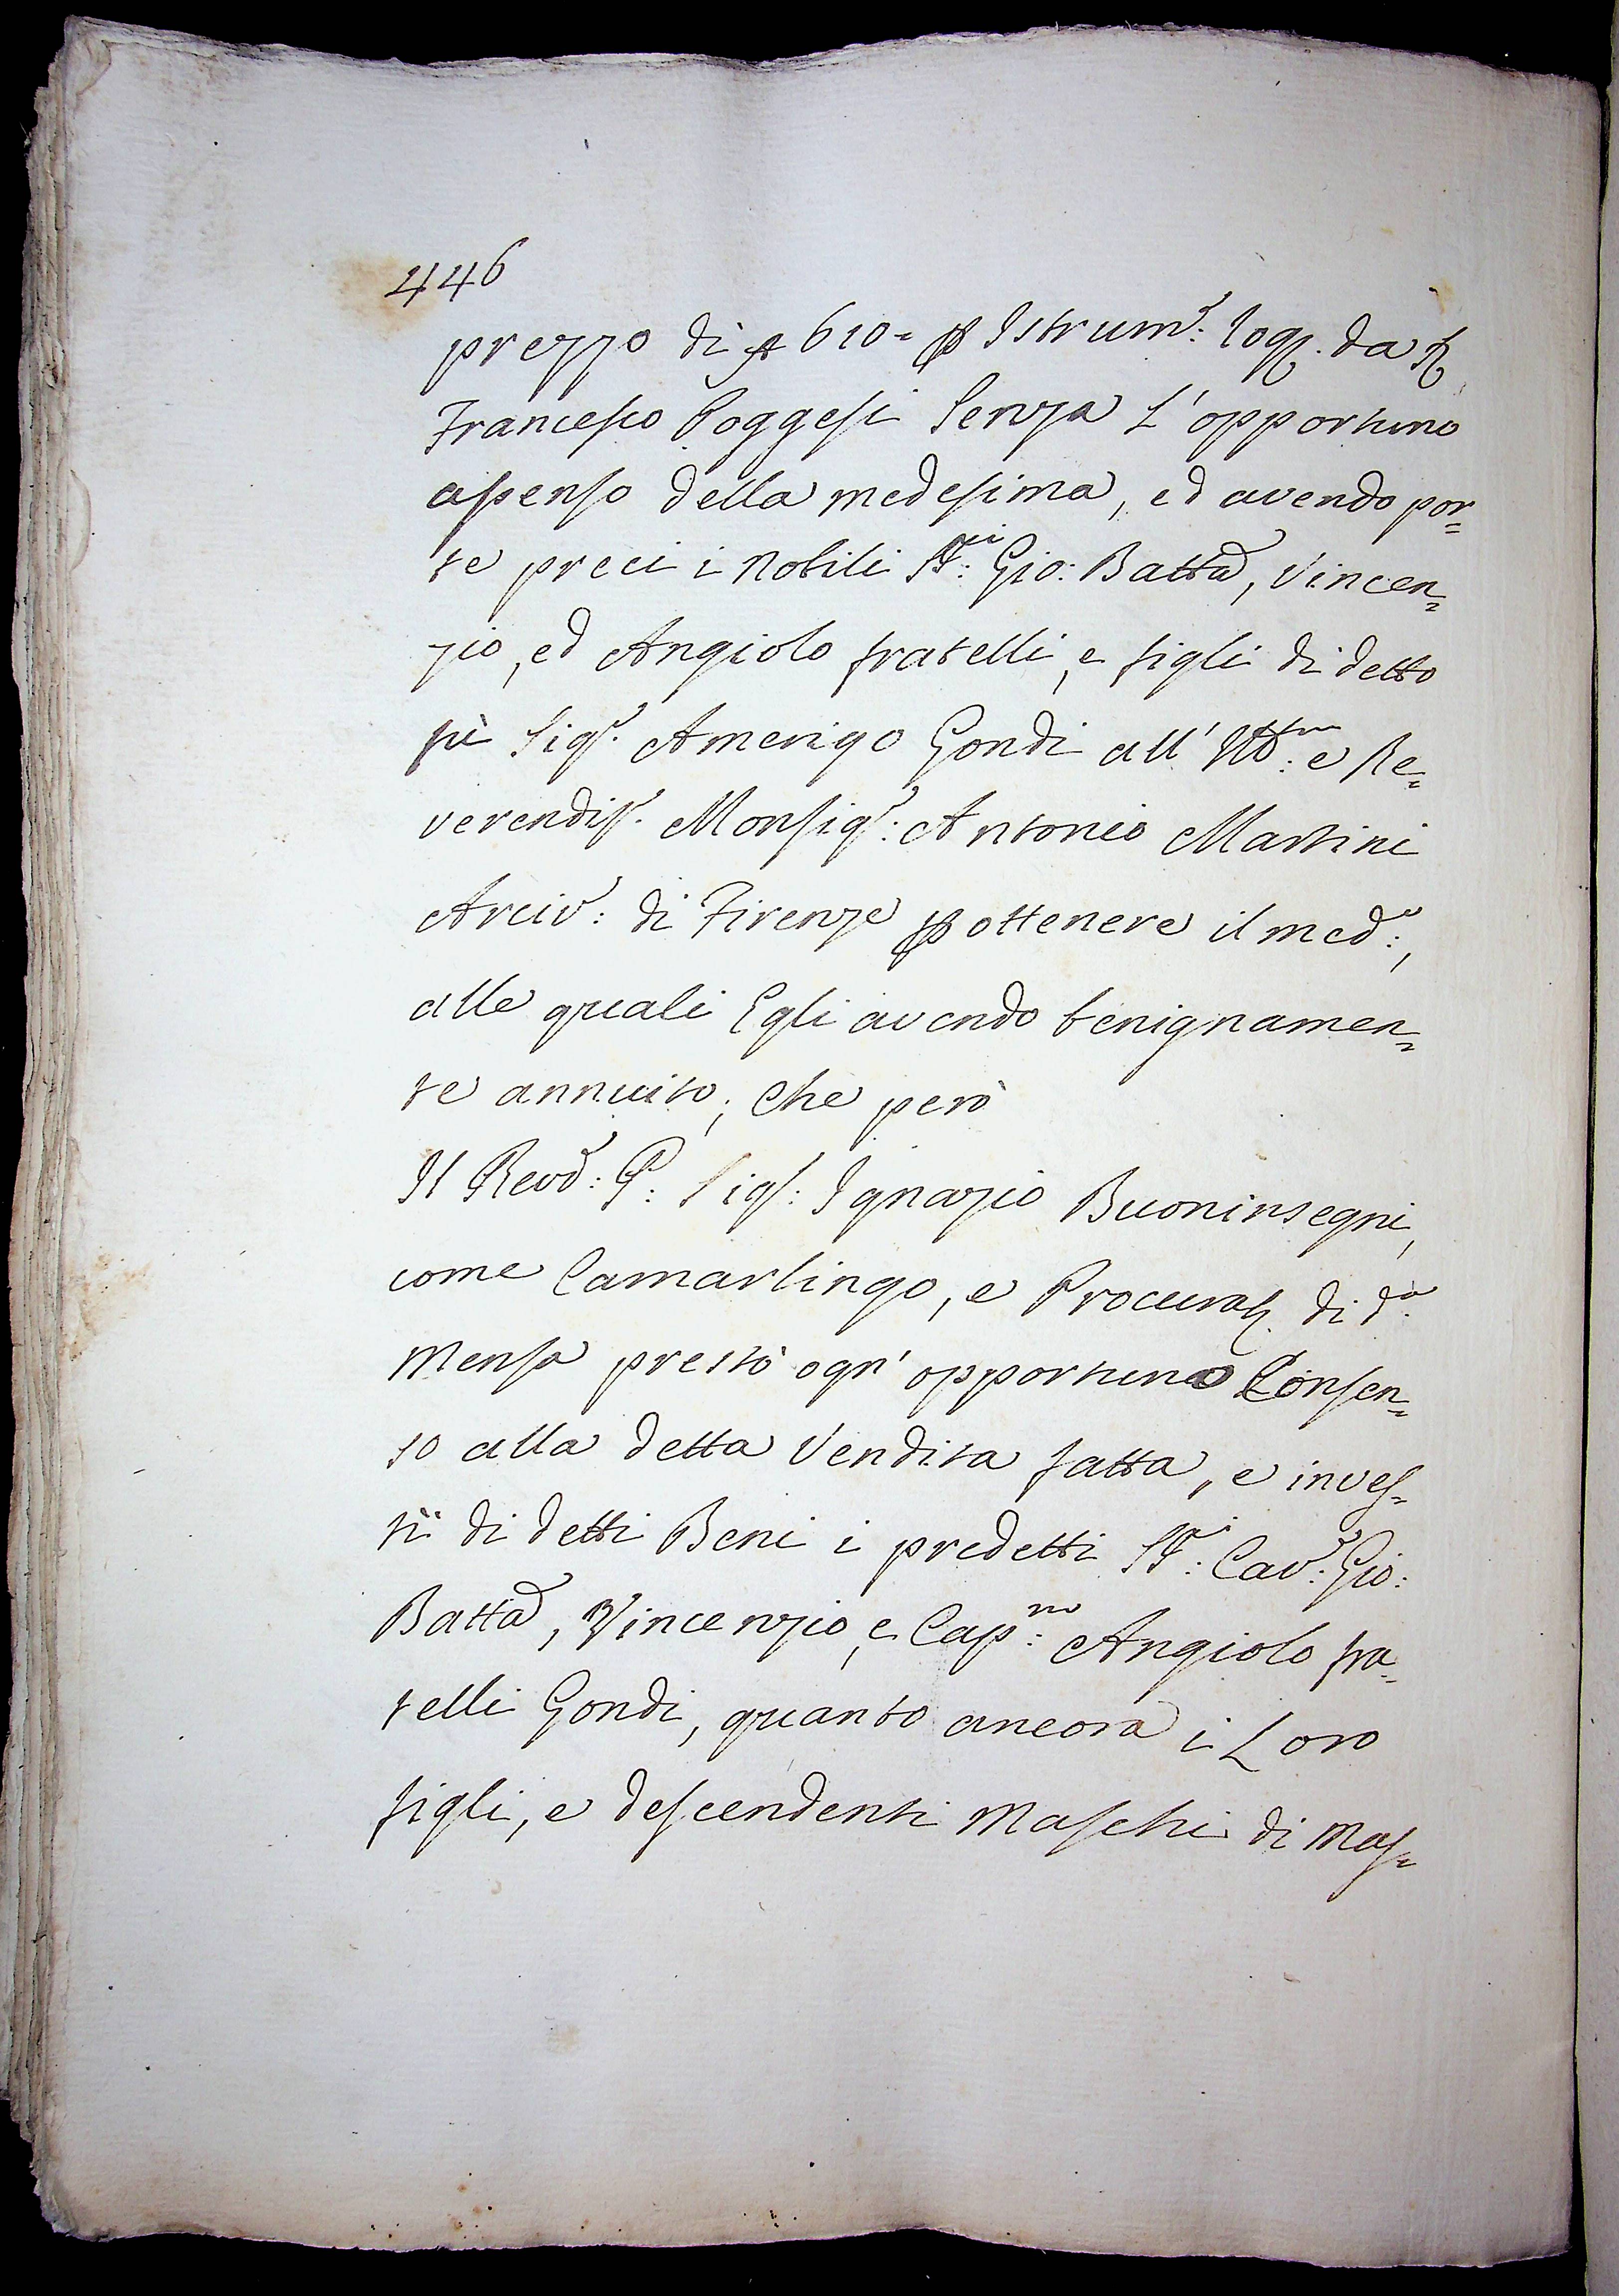 446
prezzo di 610= p Istrum: rog. da S
Francesco Poggesi senza l'opportuno
assenso della medesima, ed avendo por=
te preci i Nobili SS:ri Gio: Batta, Vincen=
zio, ed Angiolo fratelli, e figli di detto
fù Sigr. Amerigo Gondi all' Ill:mo e Re=
verendis. Monsigr: Antonio Martini
Arciv: di Firenze p ottenere il med:o,
alle quali Egli avendo benignamen=
te annuito; Che però
Il Revd: P: Sigr: Ignazio Buoninsegni,
come Camarlingo, e Procurat. di d:a
Mensa prestò ogn' opportuno Consen=
so alla detta Vendita fatta, e inves=
tì di detti Beni i predetti SS:ri Cav: Gio:
Batta, Vincenzio, e Cap:no Angiolo fra=
telli Gondi, quanto ancora i Loro
figli, e descendenti Maschi di Mas=